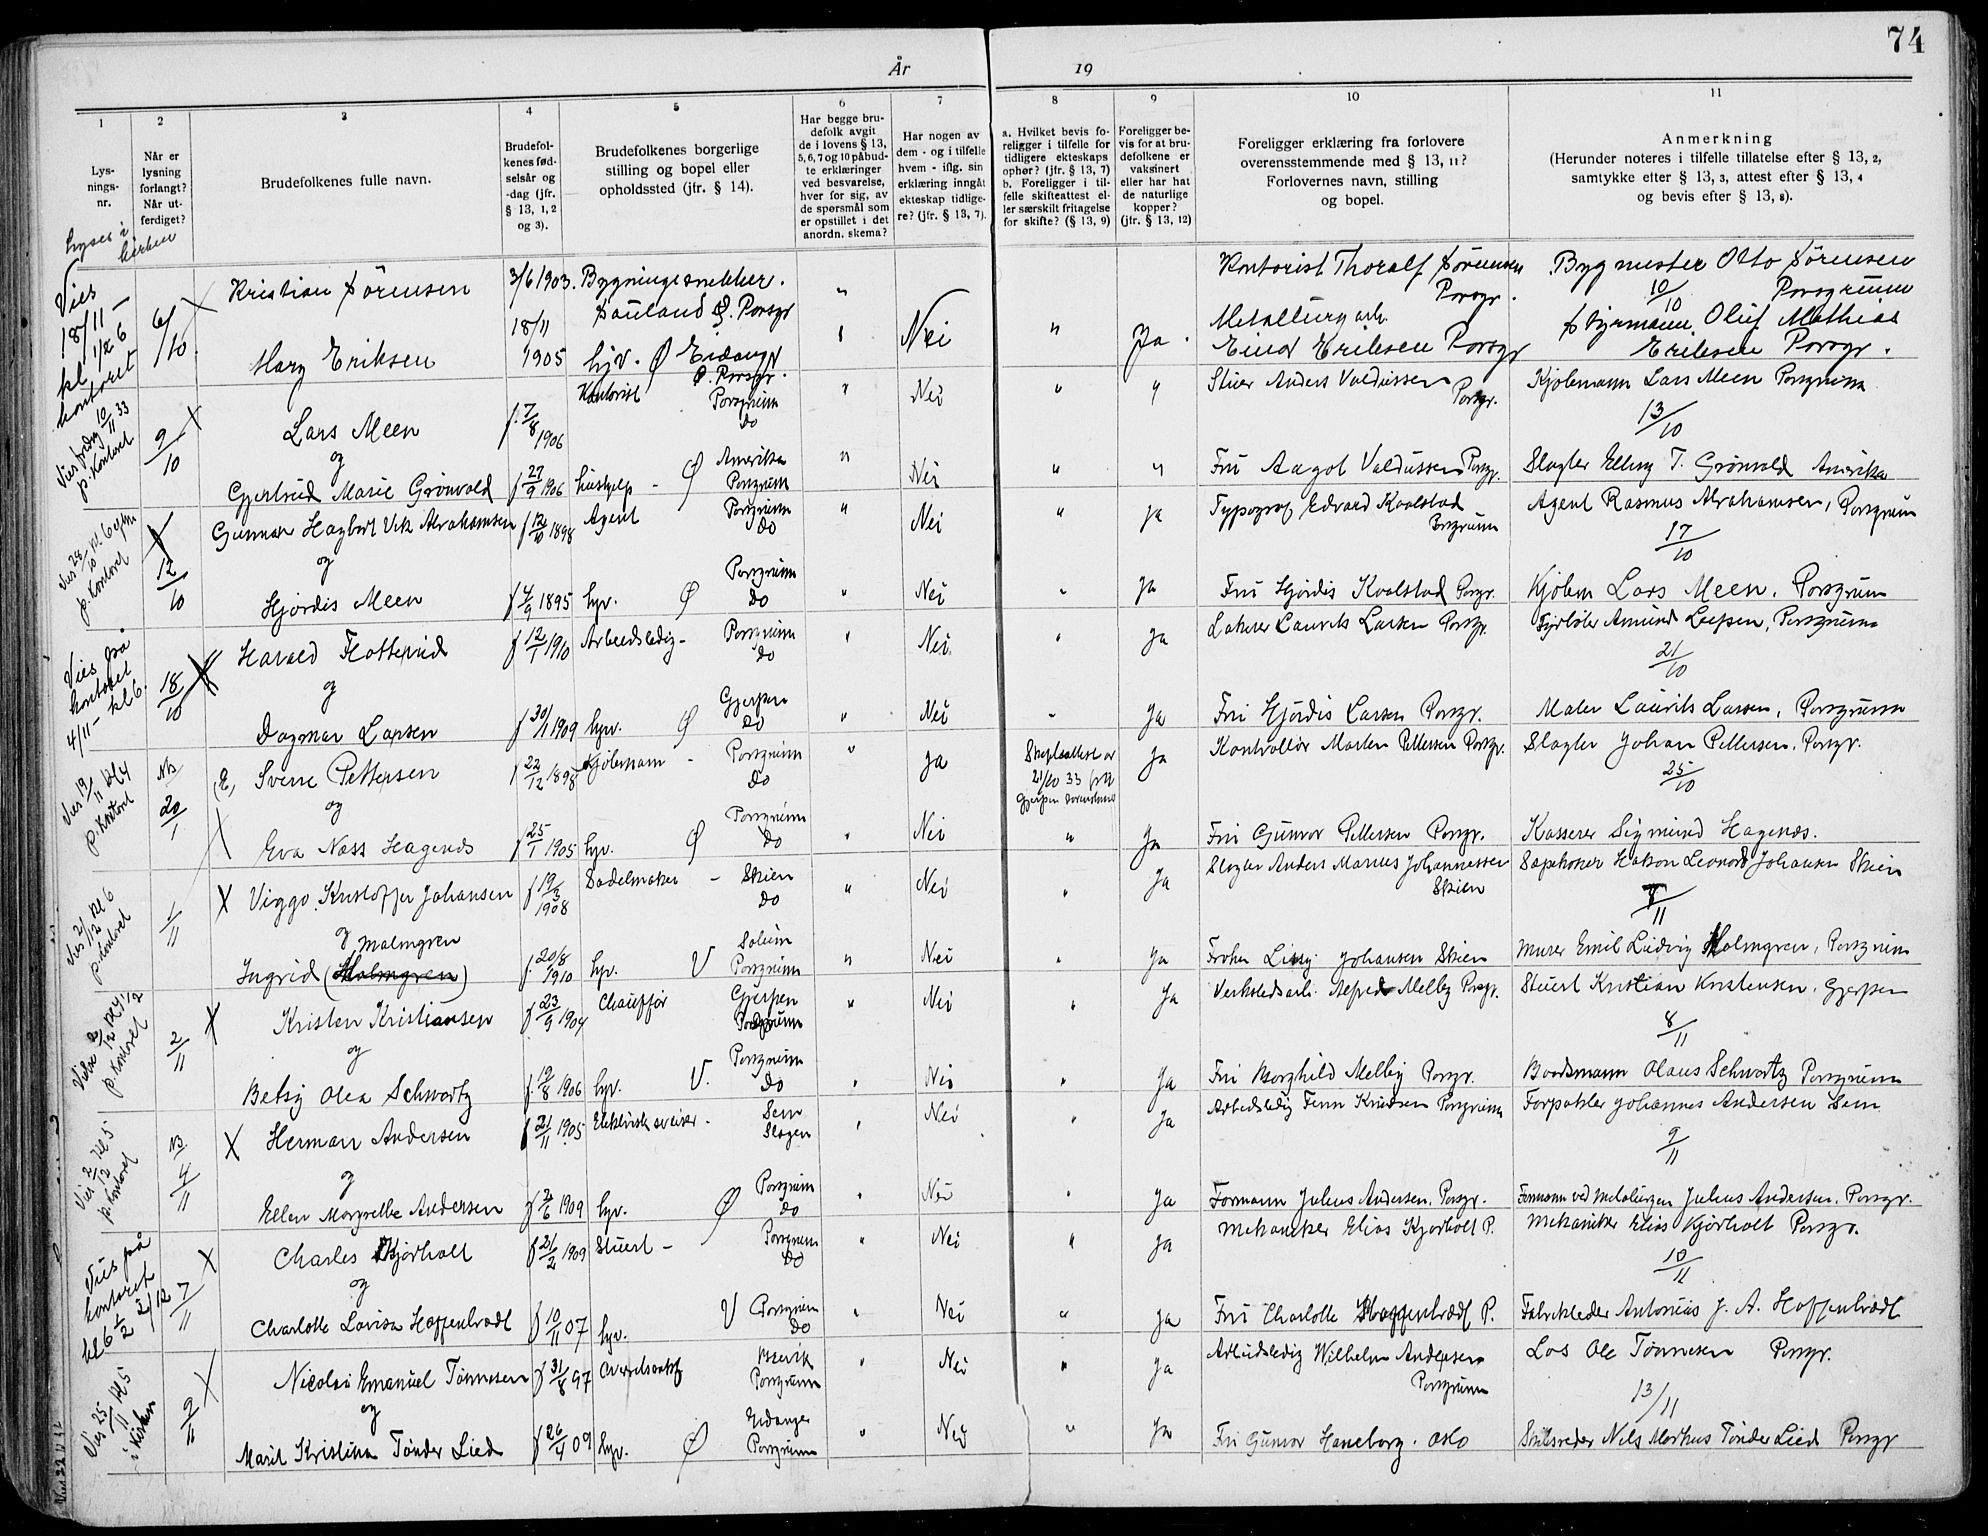 74
År
19
1
2
3
4
5
6
7
8
9
10
11
Lys-
nings-
nr.
Når er
lysning
forlangt?
Når ut-
ferdiget?
Brudefolkenes fulle navn.
Brudefol-
kenes fød-
selsår og
-dag (jfr.
§ 13, 1, 2
og 3).
Brudefolkenes borgerlige
stilling og bopel eller
opholdssted (jfr. § 14).
Har begge bru-
defolk avgit
de i lovens § 13,
5, 6, 7 og 10 påbud-
te erklæringer
ved besvarelse,
hver for sig, av
de spørsmål som
er opstillet i det
anordn. skema?
Har nogen av
dem - og i tilfelle
hvem - iflg. sin
erklæring inngått
ekteskap tidlige-
re? (jfr. § 13, 7).
a. Hvilket bevis fo-
religger i tilfelle for
tidligere ekteskaps
ophør? (jfr. § 13, 7)
b. Foreligger i til-
felle skifteattest el-
ler særskilt fritagelse
for skifte? (§ 13, 9)
Foreligger be-
vis for at bru-
defolkene er
vaksinert
eller har hat
de naturlige
kopper?
(jfr. § 13, 12)
Foreligger erklæring fra forlovere
overensstemmende med § 13, 11?
Forlovernes navn, stilling
og bopel.
Anmerkning
(Herunder noteres i tilfelle tillatelse efter § 13, 2,
samtykke efter § 13, 3, attest efter § 13, 4
og bevis efter § 13, 8).
Lyses i
kirken
Vies
18/11 –
kl 1/2 6
kontoret
6/10
X
Kristian Sörensen
3/6 1903.
Bygningssnekker.
Sauland Ø. Porsgr
"
Kontorist Thoralf Sörensen
Porsgr.
Bygmester Otto Sörensen
10/10 Porsgrunn
Mary Eriksen
18/11
1905
hjv. Ø Eidanger
Ø. Porsgr.
"
Nei
"
Ja.
Metallurg arb.
Einar Eriksen Porsgr
Styrmann Oluf Mathias
Eriksen Porsgr.
Vies fredag 10/11 33
p. Kontoret
9/10
X
Lars Meen
f. 7/8 1906
Kontorist
Porsgrunn
do
"
Nei
"
"
Stuer Anders Valdussen
Porsgr.
Kjøbmann Lars Meen Porsgrunn
13/10
og
Gjertrud Marie Grönvold
f 27/9 1906
hushjelp – Ø
Amerika
Porsgrunn
"
Nei
"
"
Frü Aagot Valdussen Porsgr.
Slagter Elling T. Grönvold Amerika
Vies 28/10 kl. 6 eftm
p. Kontoret
X
12/10
Gunnar Hagbart Vik Abrahamsen
f 12/10 1898
Agent
Porsgrunn
do
"
Nei
"
ja
Typograf Edvard Kvalstad
Porsgrunn
Agent Rasmus Abrahamsen, Porsgrunn
17/10
og
Hjördis Meen
f 4/9 1895
hjv. Ø
Porsgrunn
do
"
Nei
"
ja
Frü Hjördis Kvalstad Porsgr.
Kjøbm Lars Meen, Porsgrunn
Vies på
kontoret
4/11 – kl 6.
18/10
X
Harald Flotterud
f 12/1 1910
Arbeidsledig –
Porsgrunn
do
"
Nei
"
ja
Laurits Larsen Porsgr.
Fyrbøter Amund
Porsgrunn
21/10
og
Dagmar Larsen
f 30/1 1909
hjv. Ø
Gjerpen
do
"
Nei
"
ja
Frü Hjördis Larsen Porsgr.
Maler Laurits Larsen, Porsgrunn
Vies 19/11 kl 4
p. Kontoret
Nb
20/1
(E)
X
Sverre Pettersen
f 22/12 1898
Kjøbmann –
Porsgrunn
do
"
ja
Skifteattest av
21/10 33 fra
Gjerpen sorenskriver
ja
Kontrollör Marten Pettersen Porsgr.
Slagter Johan Pettersen, Porsgr.
25/10
og
Eva Næss Hagenäs
f 25/1 1905
hjv. Ø
Porsgrunn
do
"
Nei
"
ja
Frü Gunvor Pettersen Porsgr.
Kasserer Sigmund Hagenäs.
Vies 2/12 kl 6
p. Kontoret
1/11
X
Viggo Kristoffer Johansen
f 19/3 1908
Sadelmaker –
Skien
do
"
Nei
"
ja
Slagter Anders Marius Johannessen
Skien
Sæpekoker Hakon Leonard Johansen Skien
7/11
og Malmgren
Ingrid (Holmgren)
f. 20/8 1910
hjv. V
Solum
Porsgrunn
"
Nei
"
ja
Frøken
Johansen Skien
Murer Emil Ludvig Malmgren, Porsgrunn
p. Kontoret
2/11
X
Kristen Kristiansen
f 23/9 1904
Chauffør
Gjerpen
Porsgrunn
"
Nei
"
ja
Verkstedsarb. Alfred Melby Porsgr.
Stuert Kristian Kristensen, Gjerpen
8/11
og
Betsy Olea Schwartz
f. 19/8 1906
hjv. V.
Porsgrunn
do
"
Nei
"
ja
Frü Borghild Melby Porsgr.
Baadsmann Olaus Schwartz Porsgrunn
Vies 2/12 kl 5
p. Kontoret
Nb
4/11
X
Herman Andersen
f 21/11 1905
Elektrisk sveiser –
Sem
Slagen
"
Nei
"
ja
Arbeidsledig Finn Knudsen Porsgrunn
Forpakter Johannes Andersen Sem
9/11
og
Ellen Margrethe Andersen
f 2/6 1909
hjv. Ø
Porsgrunn
do
"
Nei
"
ja
Formann Julius Andersen, Porsgr.
Formann ved Metalurgen Julius Andersen, Porsgr.
Vies på
kontoret
kl 6 1/2 2/12
7/11
X
Charles Kjörholt
f 21/2 1909
Stuert –
Porsgrunn
do
"
Nei
"
ja
Mekaniker Elias Kjörholt P.
Mekaniker Elias Kjörholt Porsgr.
10/11
og
Charlotte Lovisa Hoffenbradl
f 10/11 07
hjv. V
Porsgrunn
do
"
Nei
"
ja
Frü Charlotte Hoffenbradl P.
Fabrikleder Antonius J. A. Hoffenbradl
Vies 25/11 kl 5
i Kirken
9/11
X
Nicolai Emanuel Tönnesen
f 31/8 97
Brevik
Porsgrunn
"
Nei
"
ja
Arbeidsledig Wilhelm Andersen
Porsgrunn
Los Ole Tönnesen Porsgr.
13/11
og
Marit Kristina Tönder Lied
f 26/4 09
hjv. Ø
Eidanger
Porsgrunn
"
Nei
"
ja
Frü Gunvor Haneborg. Oslo
Skibsreder Nils Markus Tönder Lied Porsgr